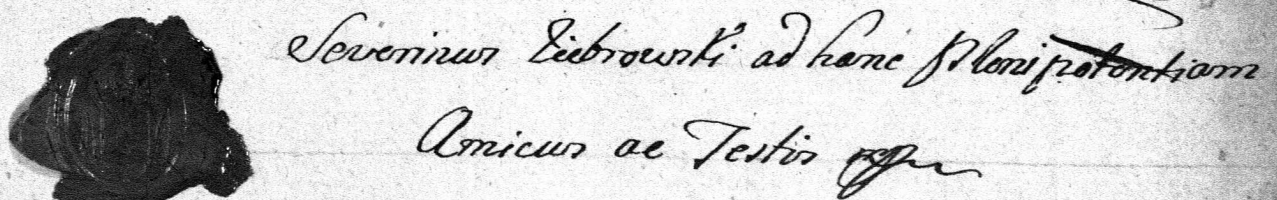 Severinus Ziebrowski ad hanc Plenipotentiam
Amicus ac Testis mpr